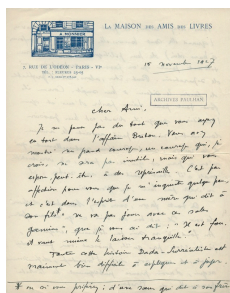 A. MONNIER
LA MAISON DES AMIS DES LIVRES
7, RUE DE L'ODÉON - PARIS - VIe
TÉL. : FLEURUS 25-05
15 novembre 1927
ARCHIVES PAULHAN
Cher Ami,
Je ne pense pas du tout que vous ayez
eu tort dans l'affaire Breton. Vous avez
montré un grand courage, un courage qui, je
crois, ne sera pas inutile, mais qui vous
expose peut-être à des représailles. C'est par
affection pour vous que je m'inquiète quelque peu
et c'est dans l'esprit d'une mère qui dit à
son fils "ne va pas jouer avec ce sale
gamin", que je vous ai dit : "Il est fou,
il vaut mieux le laisser tranquille".
Toute cette histoire Dada-Surréalistes est
vraiment bien difficile à expliquer et à juger